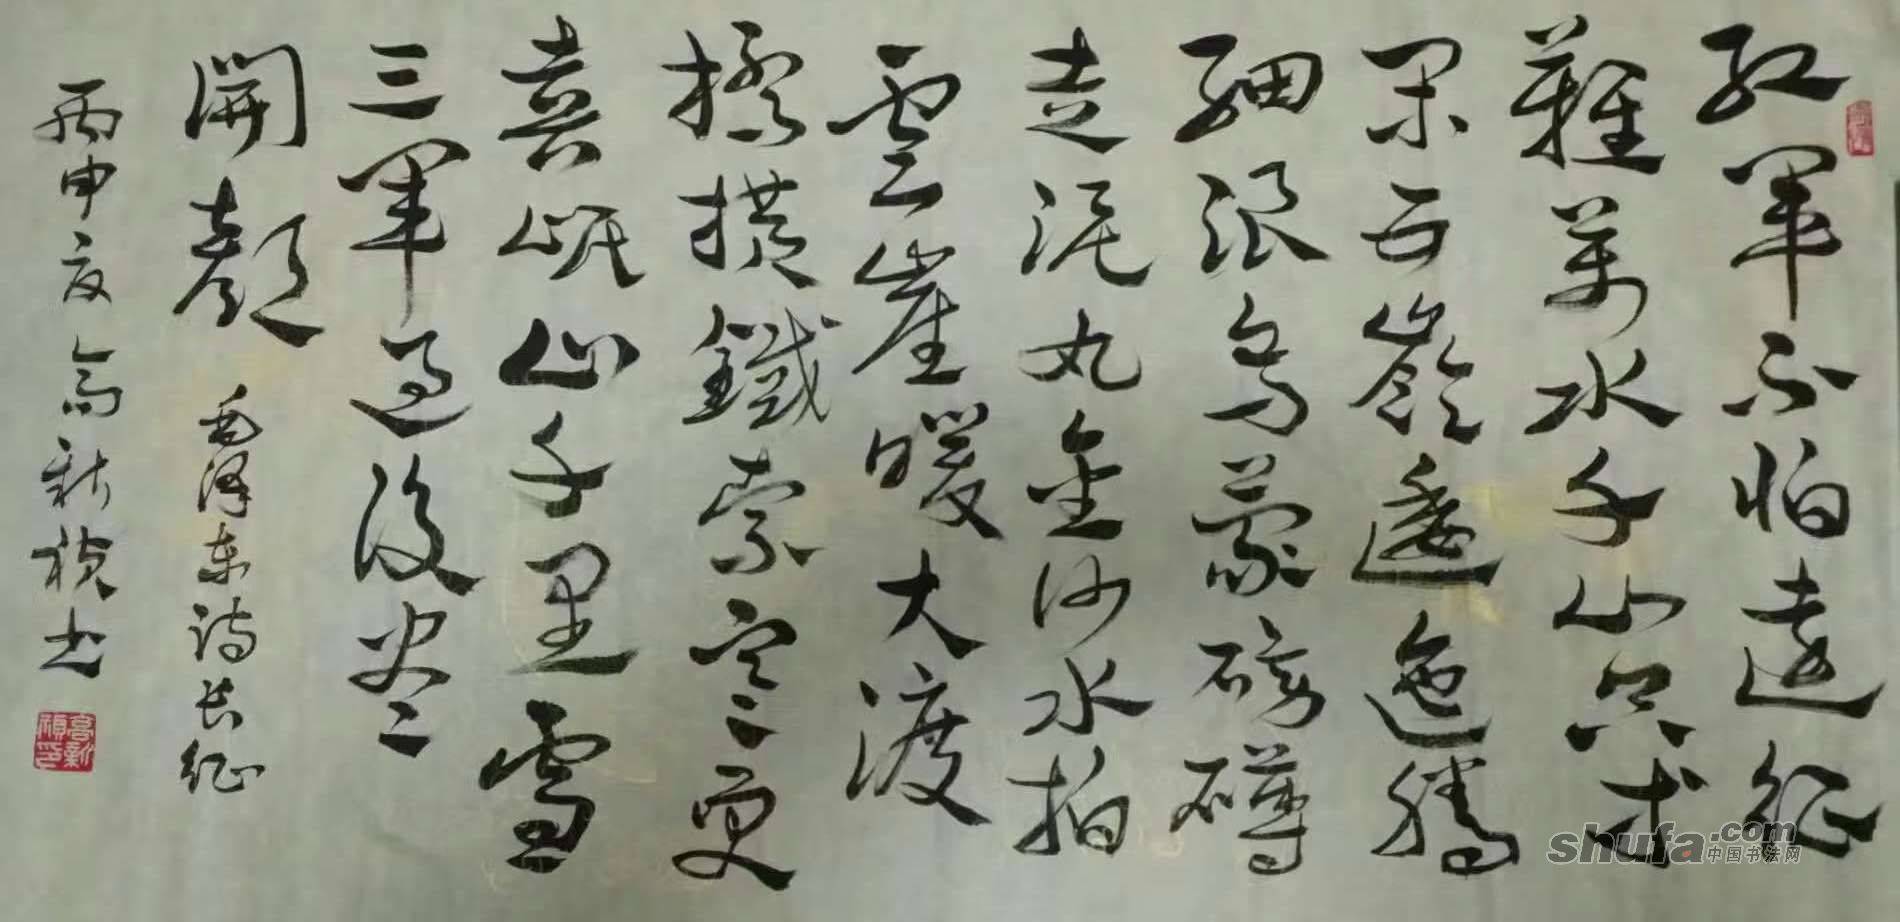 紅軍不怕遠征
難萬水千山只等
閑五嶺逶迤騰
細浪烏蒙磅礴
走泥丸金沙水拍
雲崖暖大渡
橋橫鐵索寒更
喜岷山千里雪
三軍過後盡
開顏
毛澤東詩長征
丙申夏高新禎书
shufa.com
中国书法网